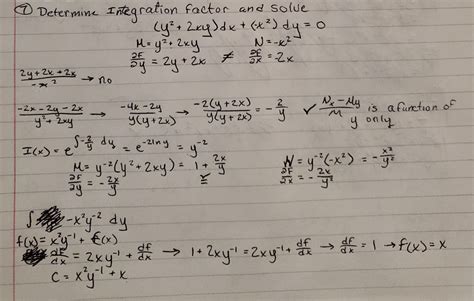 ⑦ Determine Integration factor and solve
(y² + 2xy)dx + (-x²) dy = 0
M = y² + 2xy N = -x²
∂F/∂y = 2y + 2x ≠ ∂F/∂x = -2x
(2y + 2x + 2x)/(-x²) → no
(-2x - 2y - 2x)/(y² + 2xy) → (-4x - 2y)/(y(y + 2x)) → (-2(y + 2x))/(y(y + 2x)) = -2/y ✓ (Nx - My)/M is a function of y only
I(x) = e^(∫-2/y dy) = e^(-2lny) = y⁻²
M = y⁻²(y² + 2xy) = 1 + 2x/y N = y⁻²(-x²) = -x²/y²
∂F/∂y = -2x/y ∂F/∂x = -2x/y²
∫ -x²y⁻² dy
f(x) = x²y⁻¹ + f(x)
df/dx = 2xy⁻¹ + df/dx → 1 + 2xy⁻¹ = 2xy⁻¹ + df/dx → df/dx = 1 → f(x) = x
C = x²y⁻¹ + x